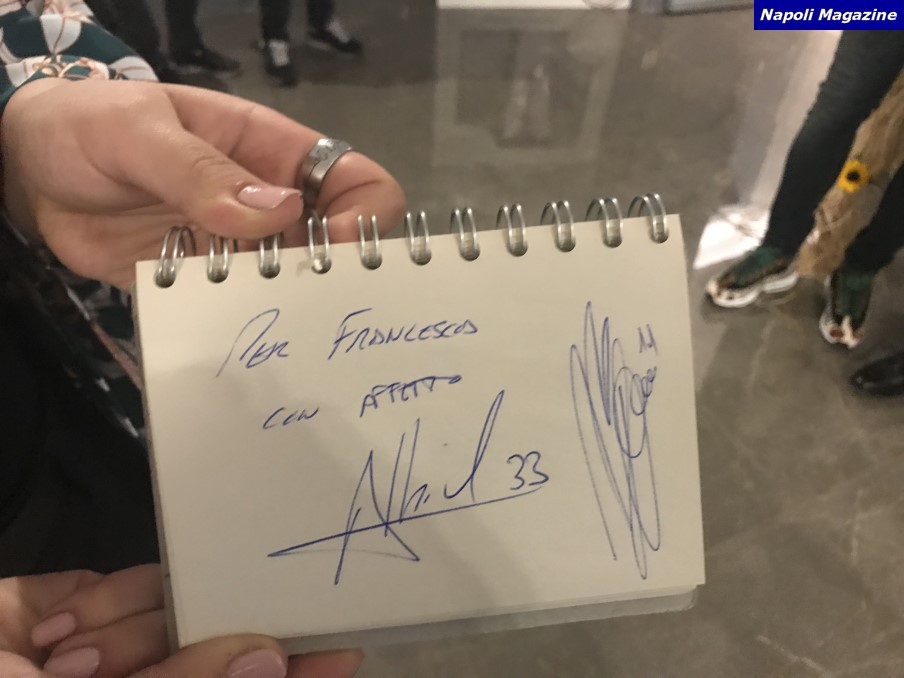 Napoli Magazine
Per Francesco
con affetto
Albiol 33